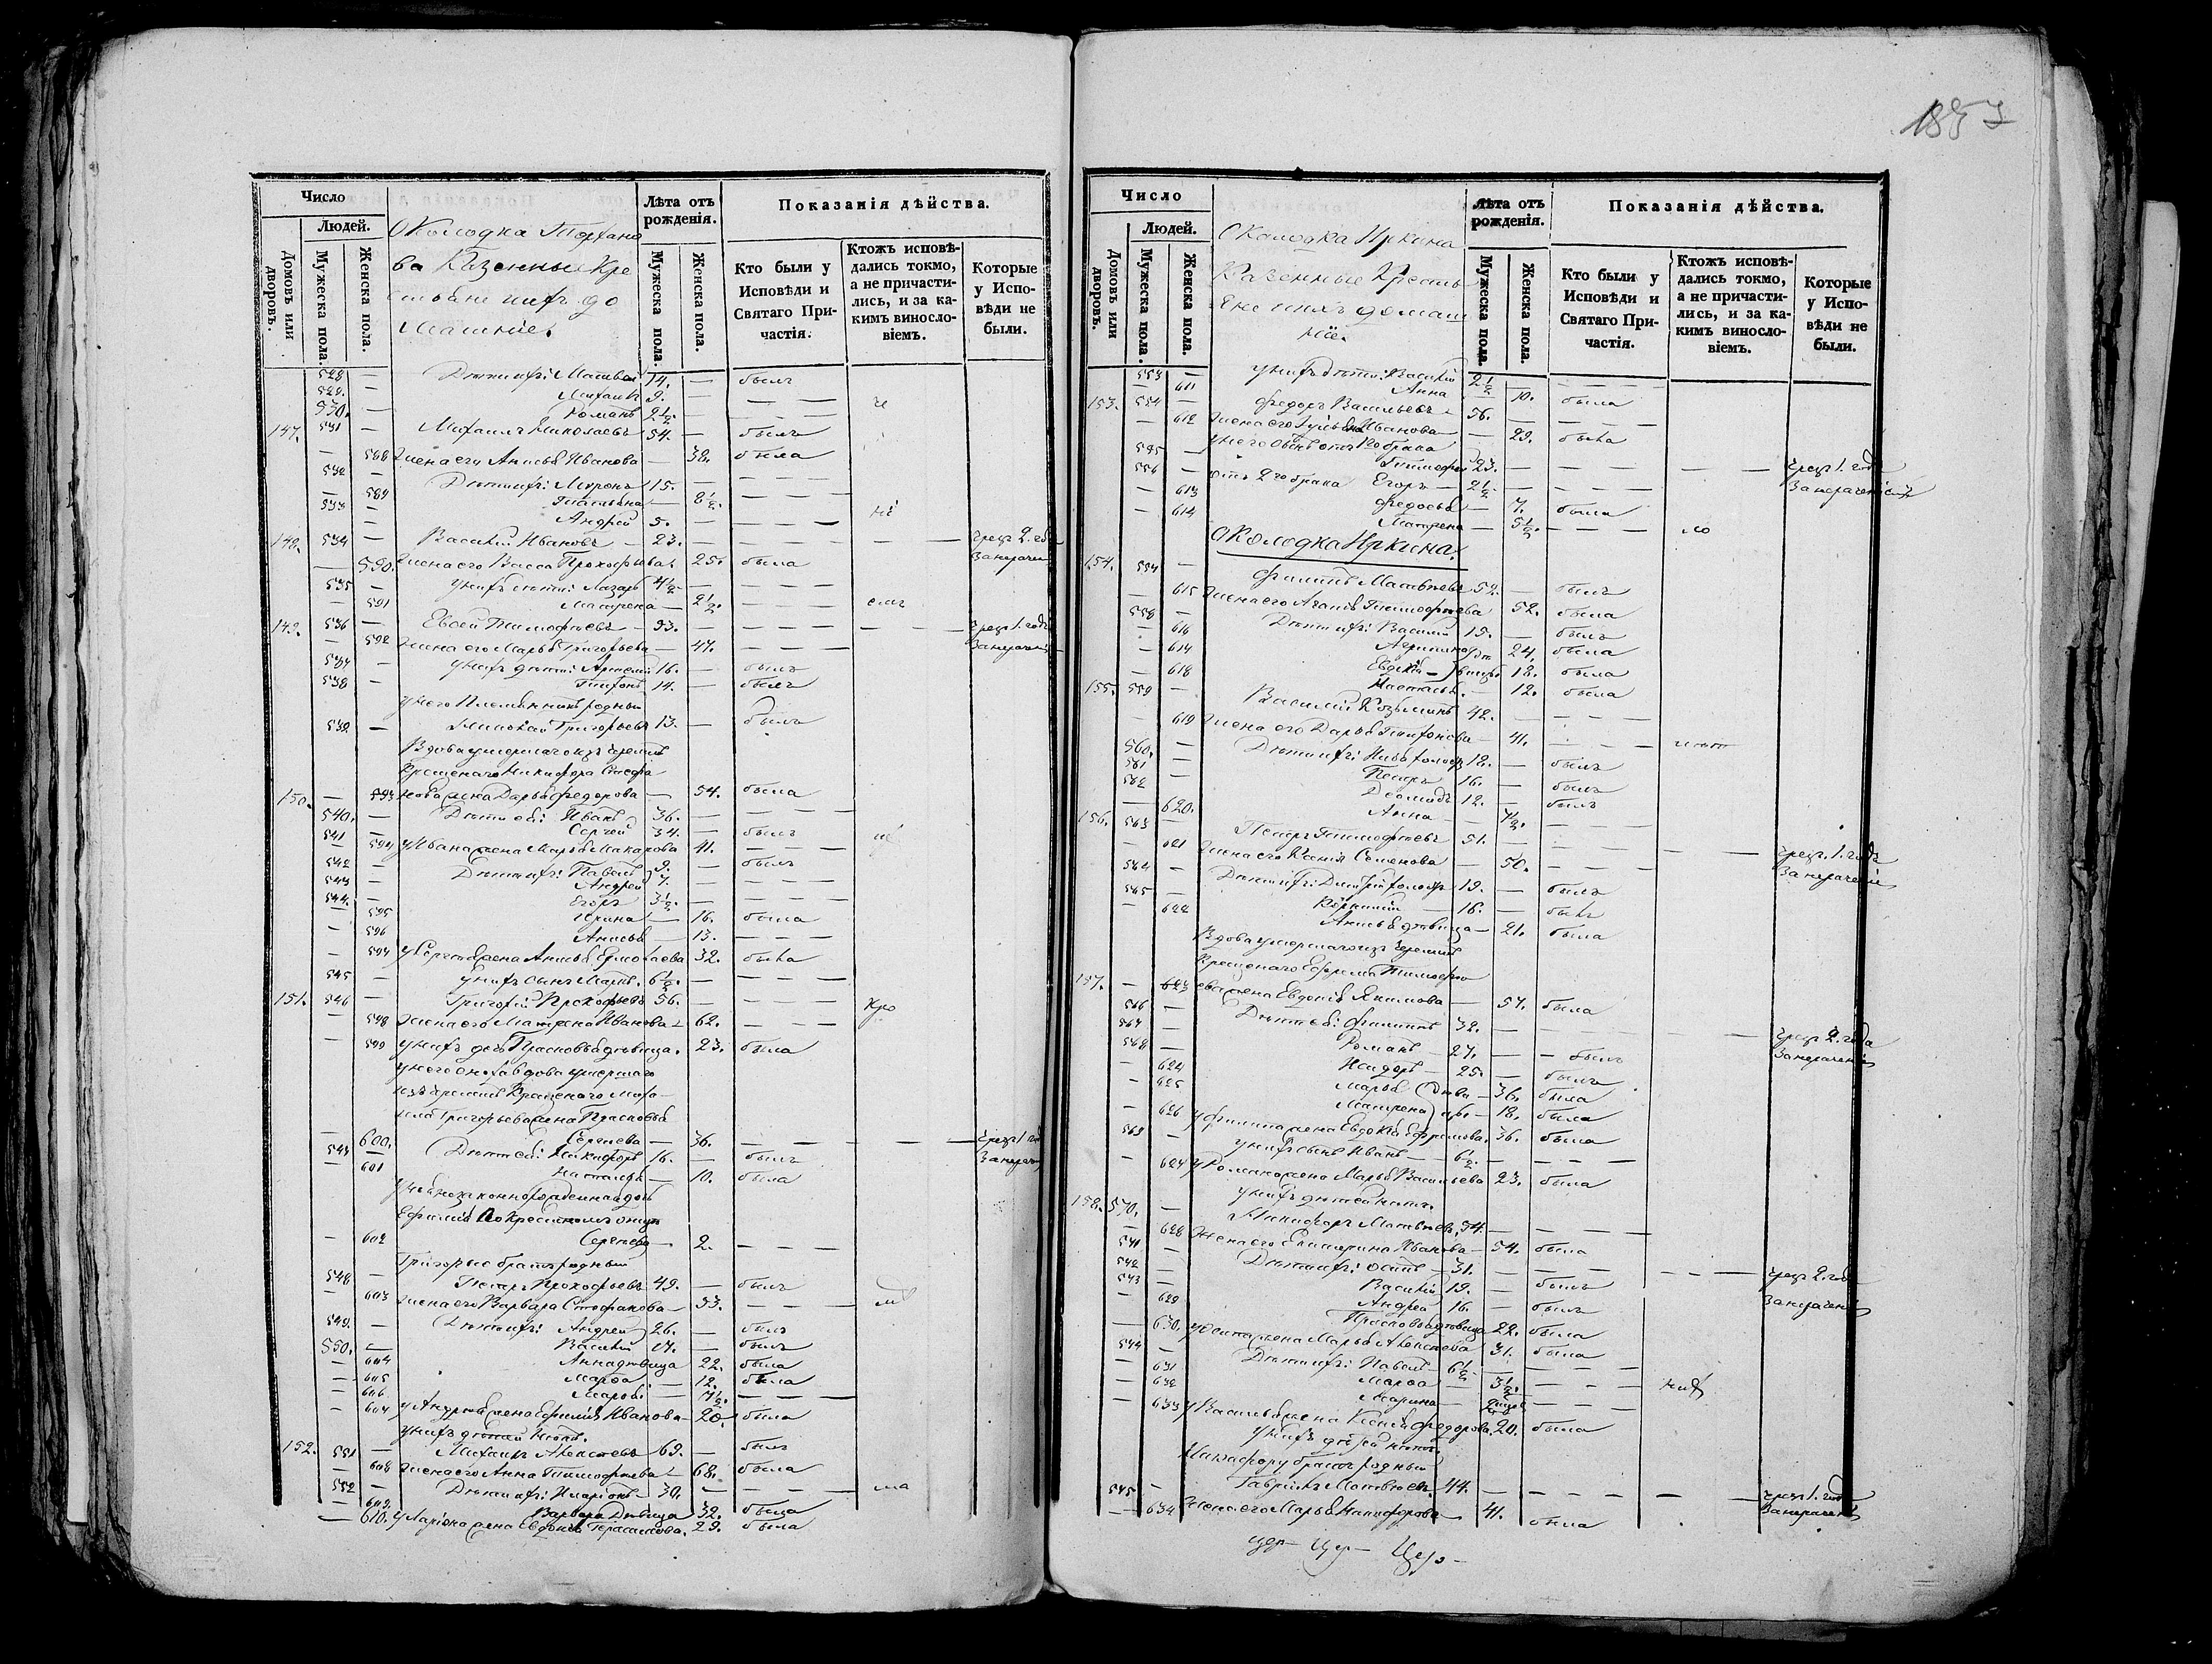 1857
Число
Людей.
Домовъ или дворовъ.
Мужеска пола.
Женска пола.
Околодка
ва Казенные Кре
стьяне ихъ до
машніе.
Лѣта отъ рожденія.
Мужеска пола.
Женска пола.
Показанія дѣйства.
Кто были у Исповѣди и Святаго Причастія.
Ктожъ исповѣдались токмо, а не причастились, и за какимъ винословіемъ.
Которые у Исповѣди не были.
528 — Дѣти ихъ: Матвей 14. — былъ
529. — Михаилъ 9. — — — —
530. — Романъ 2½. — — — —
147. 531 — Михаилъ Николаевъ 54. — былъ
— 588 Жена его Анисья Иванова — 38. была
532 — Дѣти ихъ: Миронъ 15. — — — —
— 589 Татьяна — 8½. — — —
533 — Андрей 5. — — — —
148. 534 — Василій Ивановъ — 23. — — — — чрезъ 2. года
— 590. Жена его Васса Прокофьева 25. была
535 — У нихъ дѣти: Лазарь 4½ — — — —
— 591 Матрена — 2½. — — —
149. 536 — Евсей Тимофѣевъ — 53. — — — — чрезъ 1. годъ
— 592 Жена его Марья Григорьева — 47. — — —
537 — У нихъ дѣти: Артемій 16. — былъ
538 — Тихонъ 14. — былъ
У него Племянникъ родный
539. — Николай Григорьевъ 13. — былъ
Вдова умершаго изъ черемисъ
Крещенаго Никифора Стефа
150. — 593 нова жена Дарья Федорова — 54. была
540. — Дѣти ея: Иванъ 36. — — — —
541 — Сергей 34. — былъ
— 594 У Ивана жена Марья Макарова 41. — — —
542 — Дѣти ихъ: Павелъ 9. — былъ
543 — Андрей 7. — — — —
544. — Егоръ 3½. — — — —
— 595 Ирина — 16. была
— 596 Анисья — 13. — — —
— 597 У Сергея жена Анисья Ермолаева 32. была
545 — У нихъ сынъ Маркъ. 6½. — — — —
151. 546 — Григорій Прокофьевъ 56. — — — —
— 598 Жена его Матрена Иванова — 62. — — —
— 599 У нихъ дочь Прасковья дѣвица. 23. была
У него сноха вдова умершаго
изъ черемисъ Крещенаго Миха
ила Григорьева жена Прасковья
— 600. Сергеева — 36. — — — чрезъ 1 годъ
547 — Дѣти ея: Никифоръ 16. — былъ
— 601 Настасья — 10. была
У нея незаконнорожденная дочь
Ефимія по Крестному отцу
— 602 Сергеева — 2. — — —
Григорью братъ родный
548. — Петръ Прокофьевъ 49. — былъ
— 603 Жена его Варвара Стефанова — 53. — — —
549. — Дѣти ихъ: Андрей 26. — былъ
550. — Василій 17. — былъ
— 604 Анна дѣвица 22. была
— 605 Марфа — 12. была
— 606 Марья — 7½. — — —
— 607 У Андрея жена Ефимія Иванова — 20. была
У нихъ дѣтей нѣтъ.
152. 551 — Михаилъ Алексѣевъ 69. — былъ
— 608 Жена его Анна Тимофѣева — 68. была
552 — Дѣти ихъ: Иларіонъ 30. — — — —
— 609. Варвара Дѣвица 32. была
— 610. У Ларіона жена Евдокія Герасимова. 29. была
Число
Людей.
Домовъ или дворовъ.
Мужеска пола.
Женска пола.
Околодка Иркина
Казенные Кресть
яне ихъ домаш
ніе.
Лѣта отъ рожденія.
Мужеска пола.
Женска пола.
Показанія дѣйства.
Кто были у Исповѣди и Святаго Причастія.
Ктожъ исповѣдались токмо, а не причастились, и за какимъ винословіемъ.
Которые у Исповѣди не были.
553 — У нихъ дѣти: Василій 2½ — — — —
— 611 Анна — 10. была
153. 554 — Федоръ Васильевъ — 56. —
— 612 Жена его Ульяна Иванова — 29. была
555 — У него сынъ отъ 1го брака
Тимофей 23. — — — — чрезъ 1. годъ
556 — отъ 2го брака Егоръ — 2½ — — — —
— 613 Федосья — 7. была
— 614 Матрена — 5½. — — —
Околодка Иркина.
154. 557 — Филипъ Матвѣевъ 54. — былъ
— 615 Жена его Агафья Тимофѣева 52. была
558 — Дѣти ихъ: Василій 15. — былъ
— 616 24. была
— 617 Евдокія 18. была
— 618 Настасья. — 12. была
155. 559 — Василій Козьминъ 42. — — — —
— 619 Жена его Дарья Тихонова — 41. — — —
560. — Дѣти ихъ: 18. — былъ
561 — Петръ 16. — былъ
562 — Деомидъ 12. — былъ
— 620. Анна — 7½. — — —
156. 563 — Петръ Тимофѣевъ 51. — — — — чрезъ 1. годъ
— 621 Жена его Ксенія Семенова — 50. — — —
564 — Дѣти ихъ: Дмитрій холостъ 19. — былъ
565 — 16. — былъ
— 622 Анисья дѣвица — 21. была
Вдова умершаго изъ черемисъ
Крещенаго Ефрема Тимофѣ
157. — 623 ева жена Евдокія Якимова — 57. была
566 — Дѣти ея: Филипъ 32. — — — — чрезъ 2. года
567 — Романъ — 27. — былъ
568 — Исидоръ — 25. — былъ
— 624 Марья 36. была
— 625 Матрена 18. была
— 626 У Филипа жена Евдокія Ефремова. 36. была
569 — У нихъ сынъ Иванъ — 6½. — — — —
— 627 У Романа жена Марья Васильева 23. была
У нихъ дѣтей нѣтъ.
158. 570. — Никифоръ Матвѣевъ. 54. — — — —
— 628 Жена его Екатерина Иванова — 54. была
571 — Дѣти ихъ: Осипъ — 31. — — — — чрезъ 2. года
572 — Василій 19. — былъ
573 — Андрей 16. — былъ
— 629 Прасковья дѣвица 22. была
— 630. У Осипа жена Марья Алексѣева 31. была
574 — Дѣти ихъ: Павелъ — 6½ — — — —
— 631 Марфа — 3½. — — —
— 632 Марина — — — —
— 633 У Василья жена Ксенія Федорова. 20. была
У нихъ дѣтей нѣтъ.
Никифору братъ родный
575 — Гаврилъ Матвѣевъ. 44. — — — — чрезъ 1. годъ
— 634 Жена его Марья Никифорова — 41. была